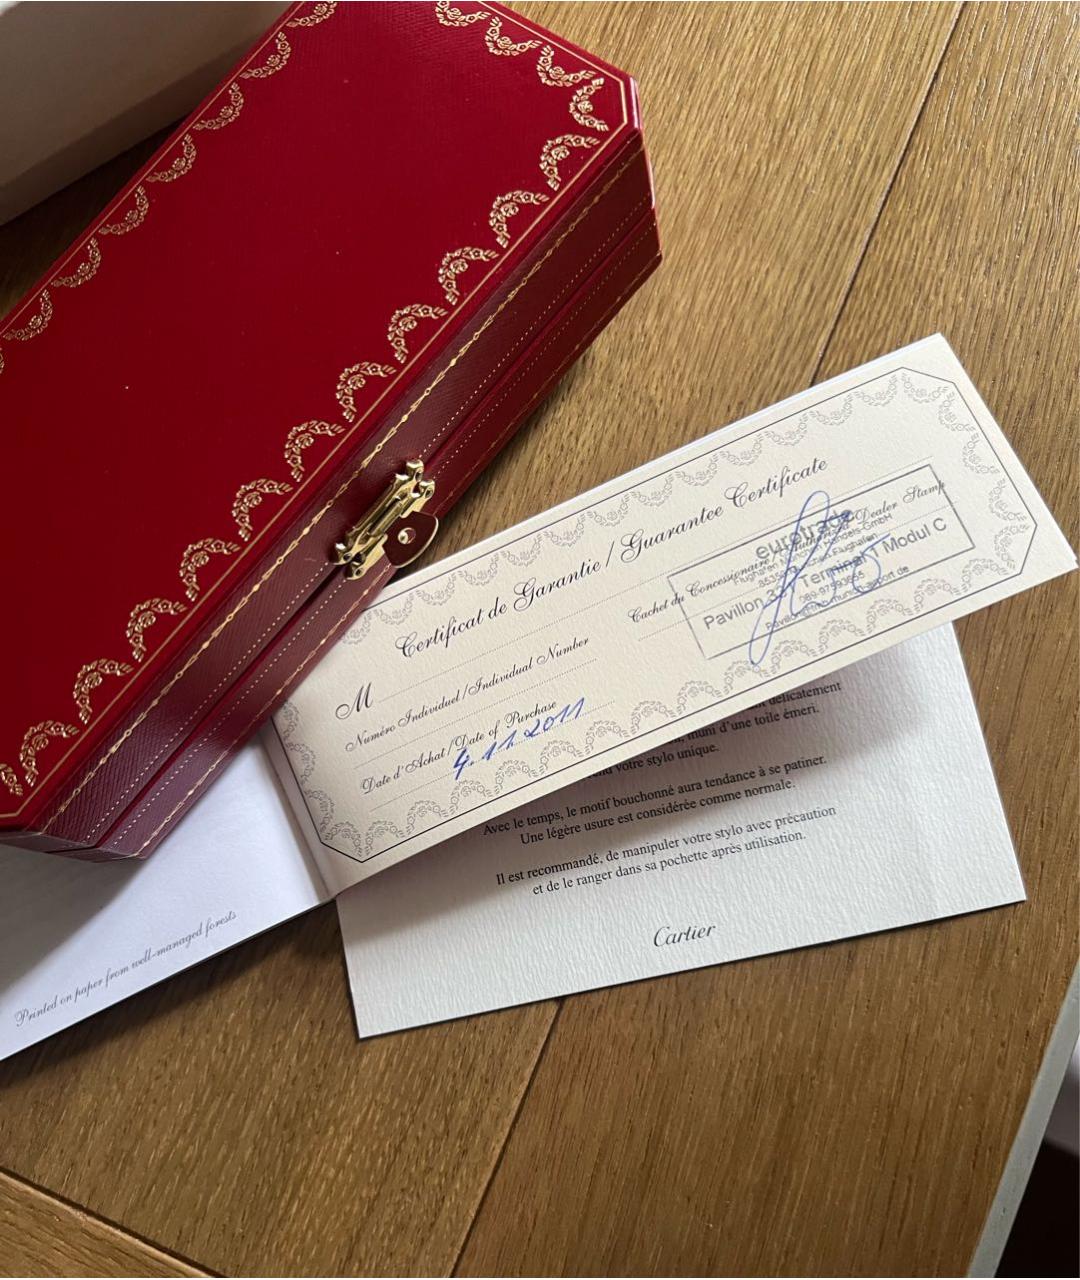 Certificat de Garantie / Guarantee Certificate
M
Numéro Individuel / Individual Number
Date d'Achat / Date of Purchase
4.11.2011
Cachet du Concessionnaire / Dealer Stamp
eurotrade
Flughafen München Handels-GmbH
Pavillon 33 / Terminal 1 Modul C
délicatement
muni d'une toile émeri.
votre stylo unique.
Avec le temps, le motif bouchonné aura tendance à se patiner.
Une légère usure est considérée comme normale.
Il est recommandé, de manipuler votre stylo avec précaution
et de le ranger dans sa pochette après utilisation.
Cartier
Printed on paper from well-managed forests